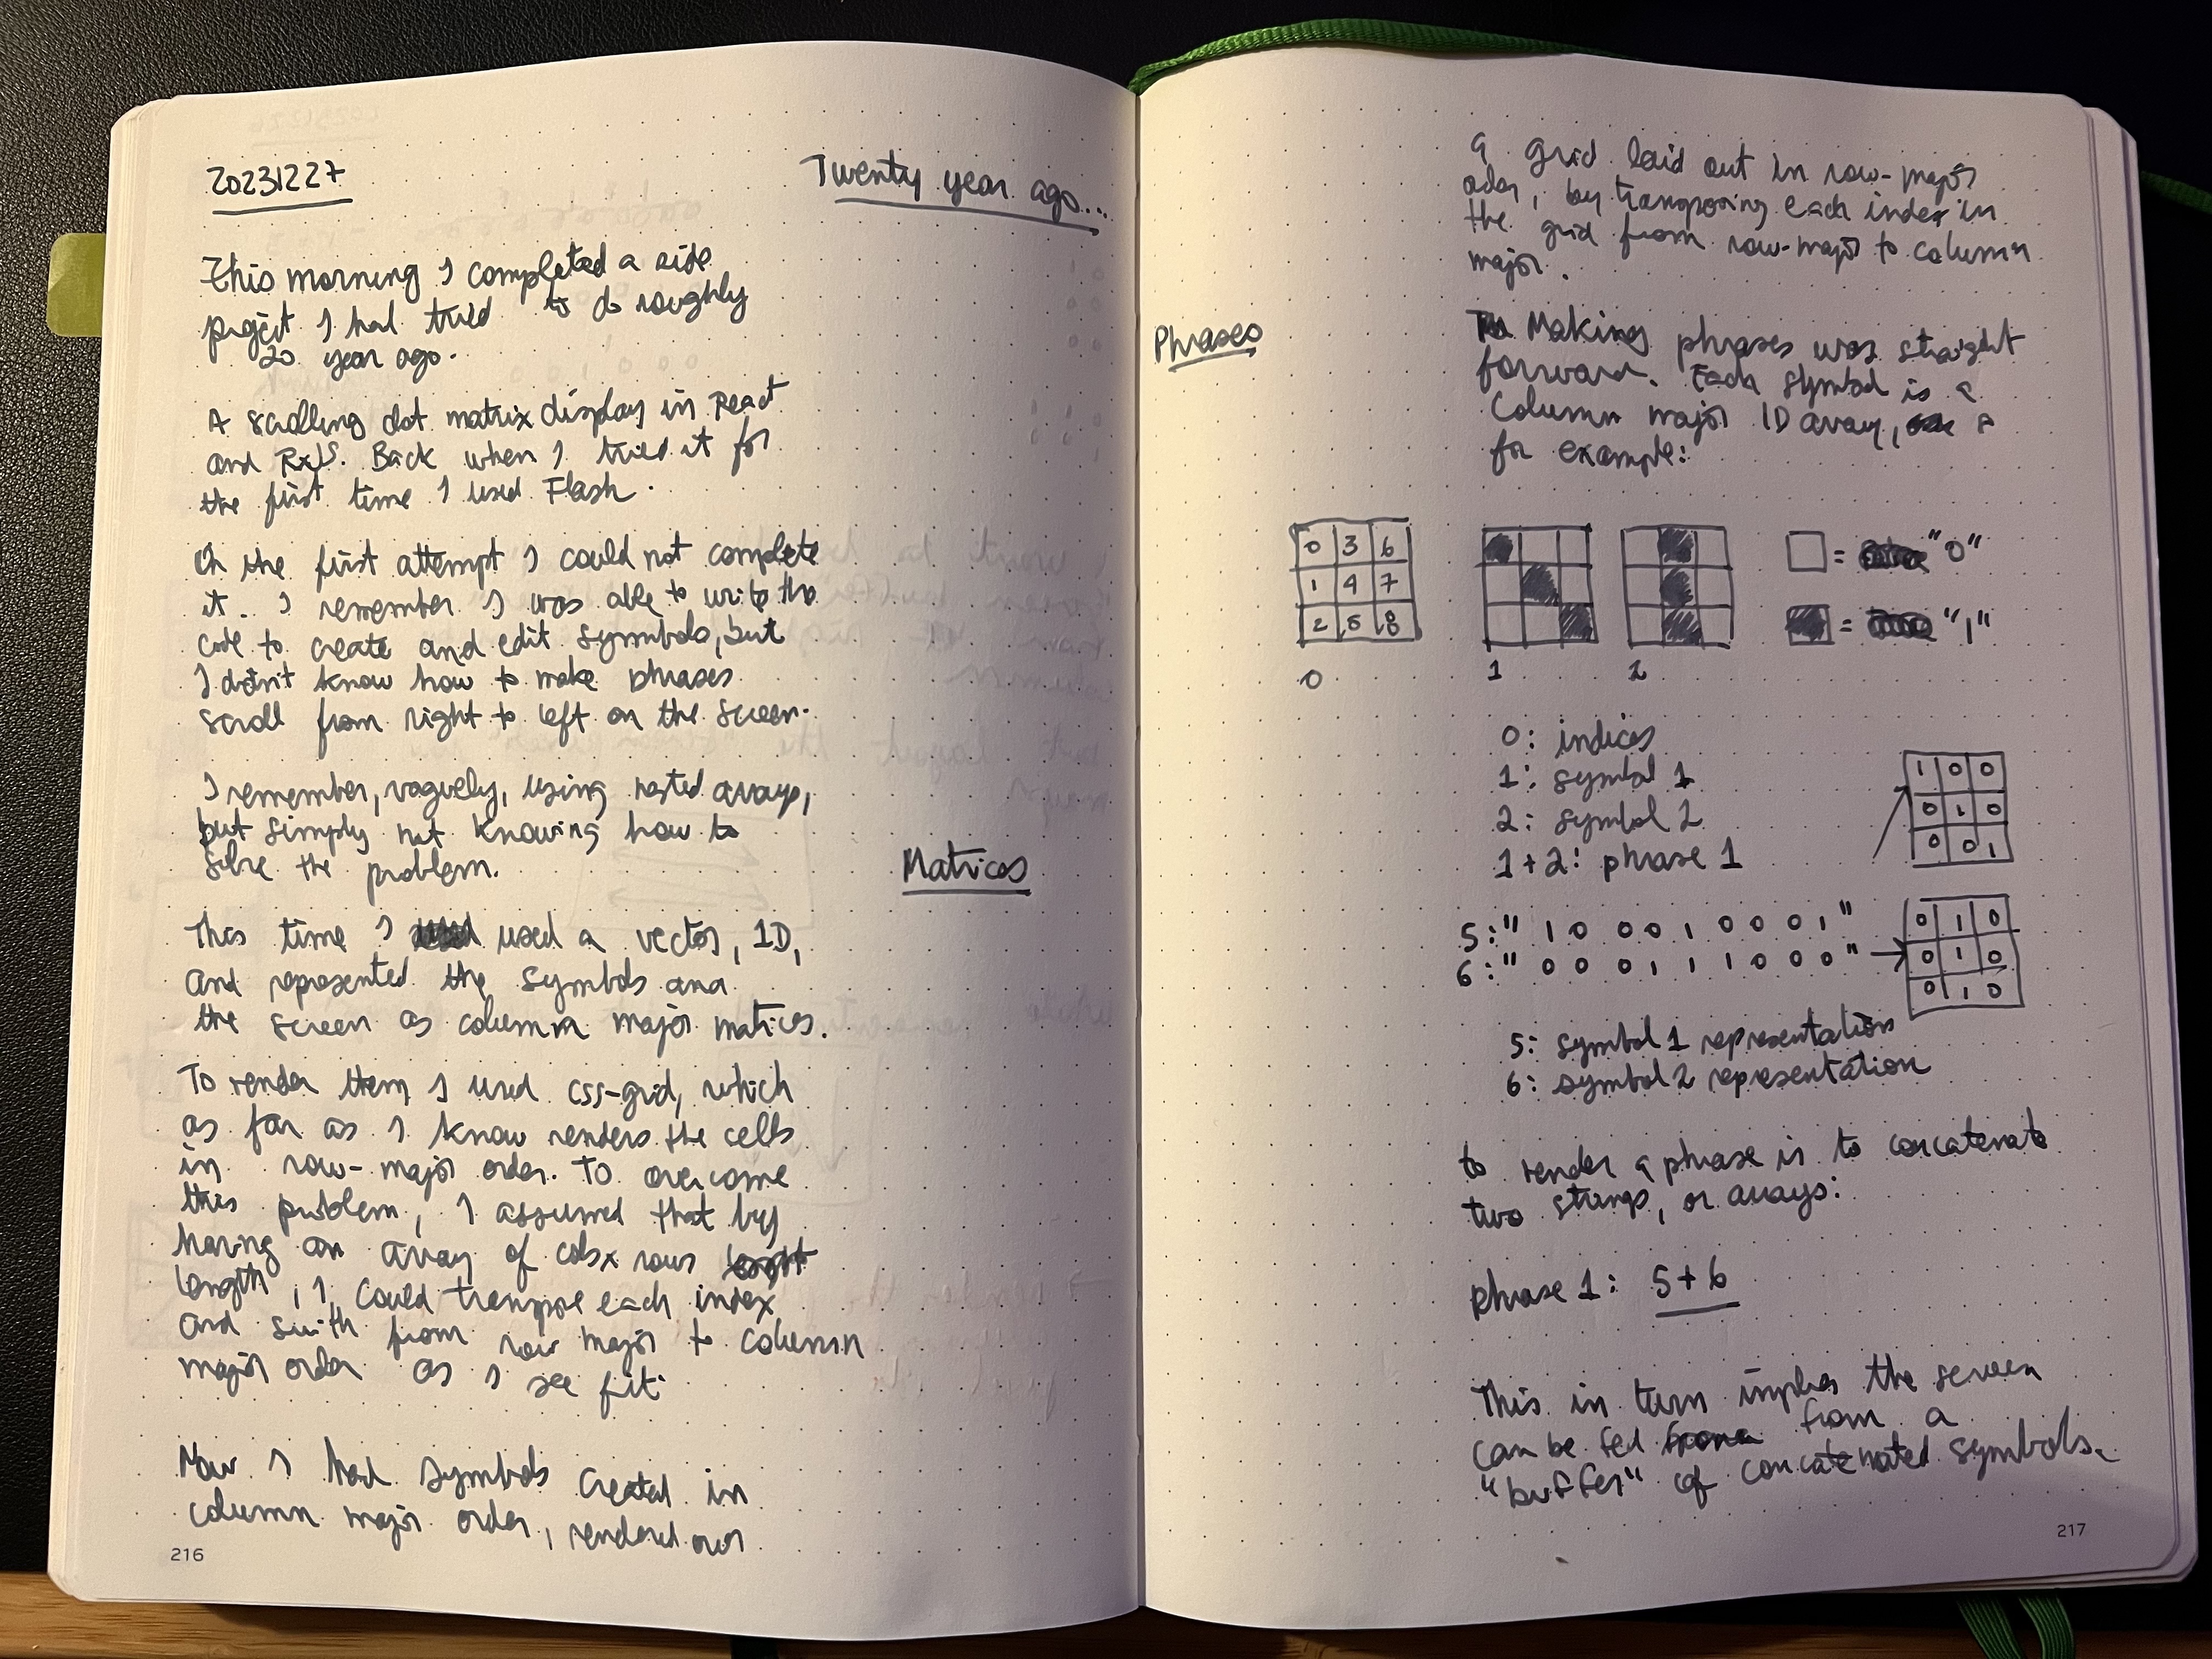 20231227
Twenty year ago...
This morning I completed a side
project I had tried to do roughly
20 year ago.
A scrolling dot matrix display in React
and RxJS. Back when I tried it for
the first time I used Flash.
In the first attempt I could not complete
it. I remember I was able to write the
code to create and edit symbols, but
I didn't know how to make phrases
scroll from right to left on the screen.
I remember, vaguely, using nested arrays,
but simply not knowing how to
solve the problem.
Matrices
This time I used a vector, 1D,
and represented the symbols and
the screen as column major matices.
To render them I used css-grid, which
as far as I know renders the cells
in row-major order. To overcome
this problem, I assumed that by
having an array of cols x rows
length, I could transpose each index
and swith from row major to column
major order as I see fit.
Now I had symbols created in
column major order, rendered over
216
a grid laid out in row-major
order, by transposing each index in
the grid from row-major to column
major.
Phrases
Making phrases was straight
forward. Each symbol is a
column major 1D array,
for example:
0 3 6
1 4 7
2 5 8
0 1 2
= "0"
= "1"
0: indices
1: symbol 1
2: symbol 2
1+2: phrase 1
1 0 0
0 1 0
0 0 1
5: " 1 0 0 0 1 0 0 0 1 "
6: " 0 0 0 1 1 1 0 0 0 "
0 1 0
0 1 0
0 1 0
5: symbol 1 representation
6: symbol 2 representation
to render a phrase is to concatenate
two strings, or arrays:
phrase 1: 5+6
This in turn implies the screen
can be fed from a
"buffer" of concatenated symbols.
217